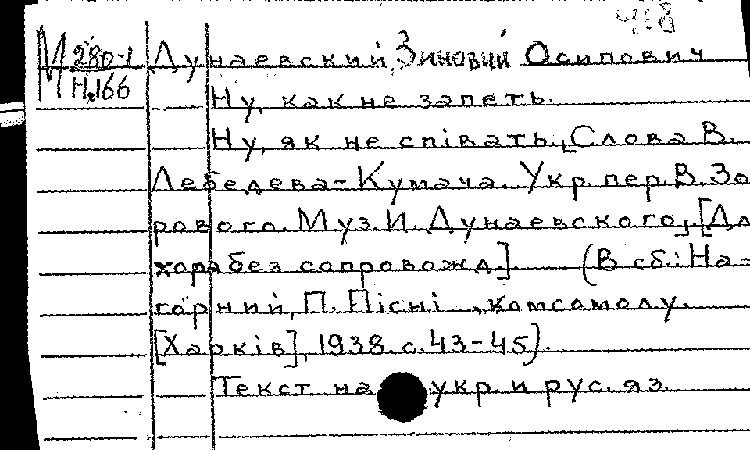 418
М 280-1 Дунаевский, Зиновий Осипович
Н.166 Ну, как не запеть.
Ну, як не співать. [Слова В.
Лебедева-Кумача. Укр. пер. В. Зо-
рового. Муз. И. Дунаевского], [Для
хора без сопровожд.] (В сб.: На-
горний, П. Пісні комсомолу.
[Харків], 1938. с. 43-45).
Текст на укр. и рус. яз.